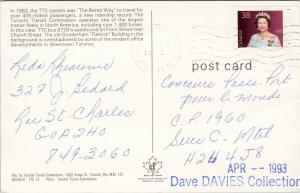 In 1983, the TTC system was "The Better Way" to travel for
over 405 million passengers, a new ridership record. The
Toronto Transit Commission operates one of the largest
transit fleets in North America, including over 1,400 buses.
In this view, TTC bus 8720 is eastbound on Front Street near
Church Street. The old Gooderham "Flatiron" Building in the
background is overshadowed by some of the modern office
developments in downtown Toronto.
38
post card
327 J Bedard
Rue St-Charles
G0A 2H0
849.3060
Concours Passe-Port
pour le monde
C.P. 1960
Succ C-Mtl
H2L 4J8
APR -- 1993
Dave DAVIES Collection